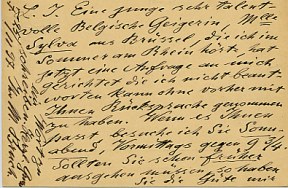 L. J. Eine junge sehr talent-
volle Belgische Geigerin Mlle
Sylva aus Brüssel, die ich im
Sommer am Rhein hörte, hat
jetzt eine Anfrage an mich
gerichtet die ich nicht beant-
worten kann ohne vorher mit
Ihnen Rücksprache genommen
zu haben. Wenn es Ihnen
passt besuche ich Sie Sonn-
abend Vormittags gegen 9 ½.
Sollten Sie schon früher
ausgehen müssen, so haben
Sie die Güte mir